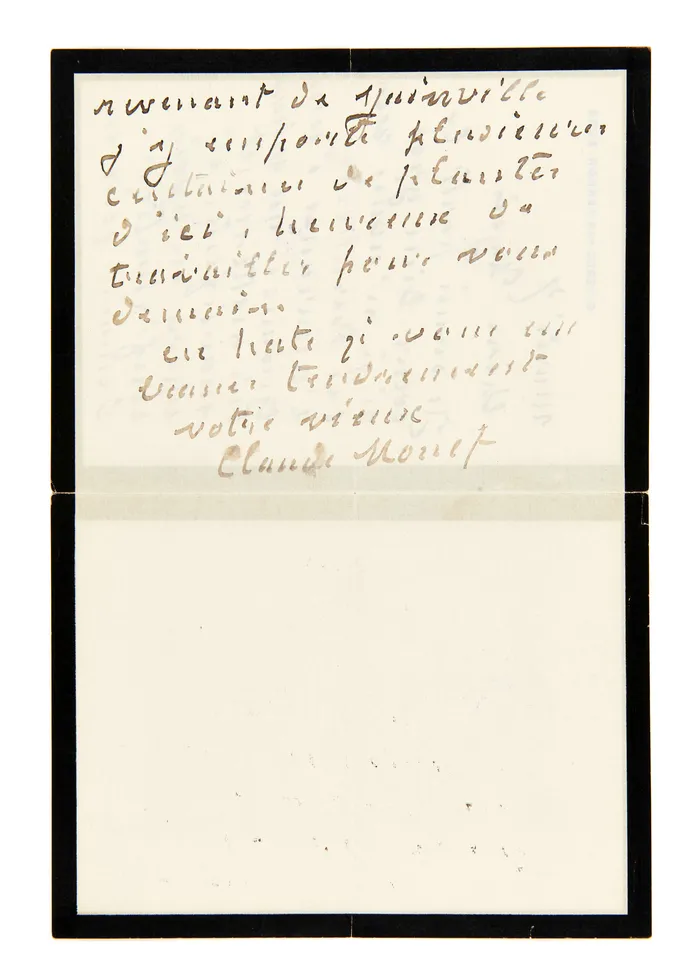 revenant de Yainville
j'y emporte plusieurs
centaines de plantes
d'ici, heureux de
travailler pour vous
demain.
en hate je vous em
brasse tendrement
votre vieux
Claude Monet